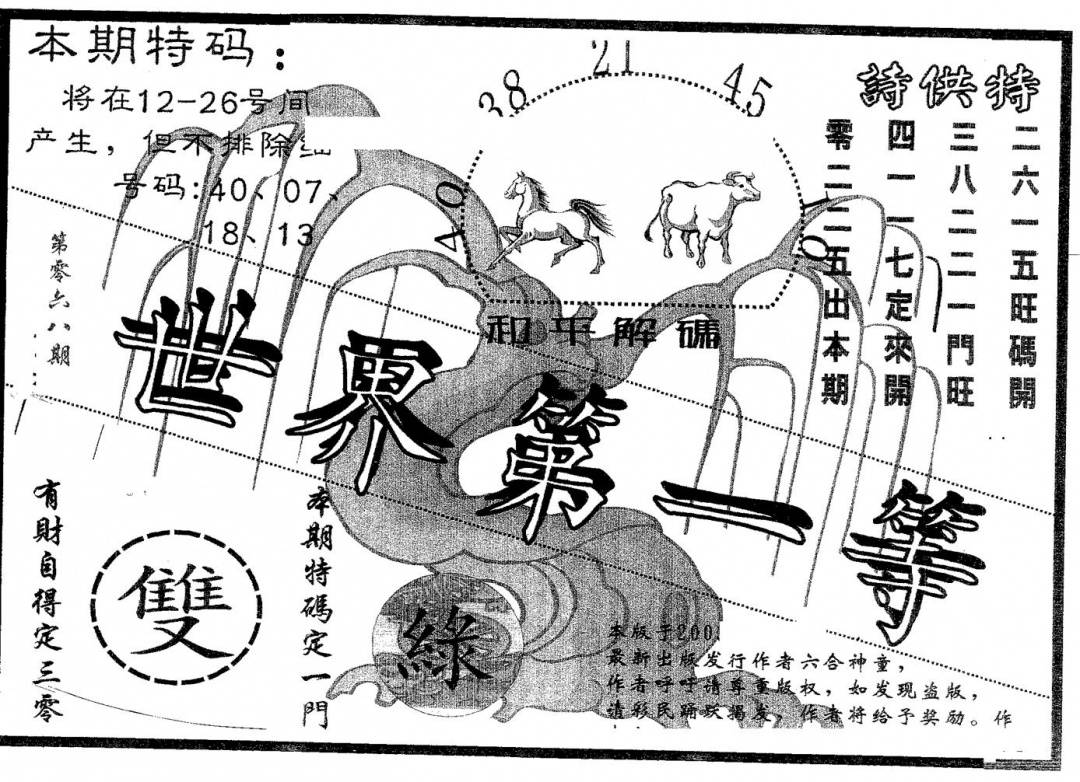 本期特码：
将在12-26号间
产生，但不排除
号码:40、07、
18、13
第零六八期
38
21
45
40
和平解碼
特供詩
二六一五旺碼開
三八二二一門旺
四一一七定來開
零二二五出本期
世界第一等
有財自得定三零
雙
本期特碼定一門
綠
本版于200
最新出版发行作者六合神童，
作者呼吁请尊重版权，如发现盗版，
请彩民踊跃揭发，作者将给予奖励。作